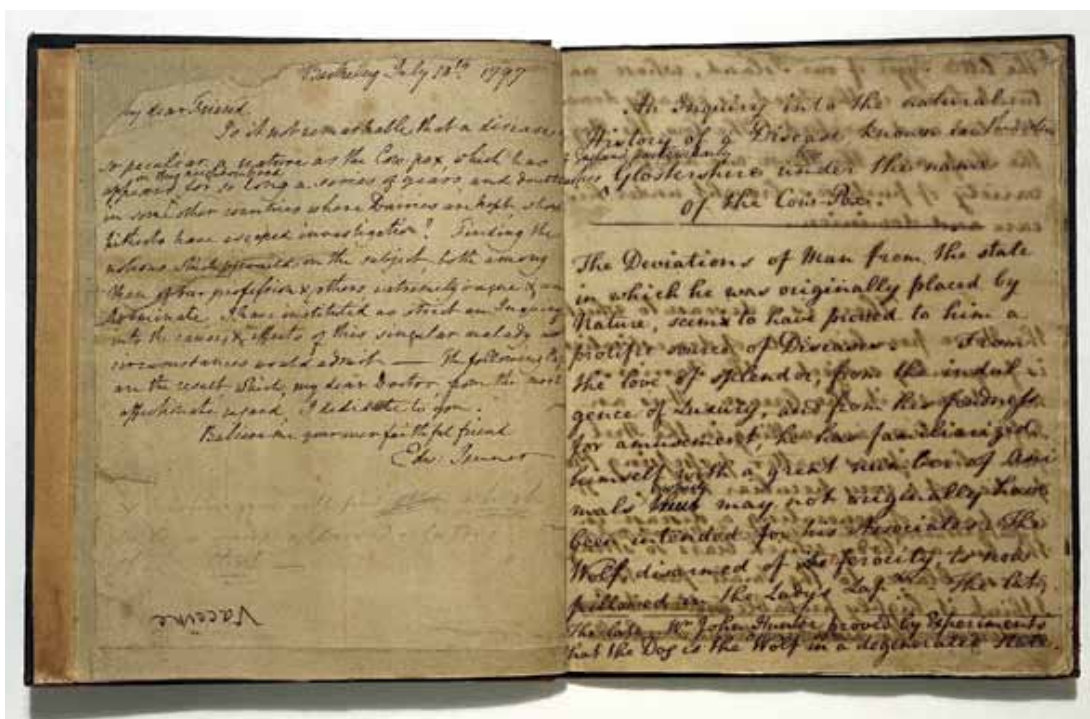 Berkeley July 10th 1797
My dear Friend
Is it not remarkable that a disease
so peculiar a nature as the Cow pox, which has
appeared for so long a series of years, and
in some other countries where Dairies are kept, should
hitherto have escaped investigation? Finding the
notions on the subject, both among
Men of our profession & others extremely vague &
I have instituted as strict an Inquiry
into the causes & effects of this singular malady as
circumstances would admit — The following
are the result, which, my dear Doctor, from the most
affectionate regard, I dedicate to you.
Believe me your ever faithful friend
Edw. Jenner
Vaccine
An Inquiry into the natural
History of a Disease known in
particularly
Glostershire under the name
of the Cow Pox.
The Deviations of Man from the state
in which he was originally placed by
Nature, seems to have proved to him a
prolific source of Diseases. From
the love of splendor, from the indul
gence of Luxury, and from his fondness
for amusement, he has familiarized
himself with a great number of Ani
mals may not originally have
been intended for his Associates. The
Wolf disarmed of its ferocity, is now
pillowed in the Ladys Lap. The
The late Mr John Hunter proved by Experiments
that the Dog is the Wolf in a degenerated state.